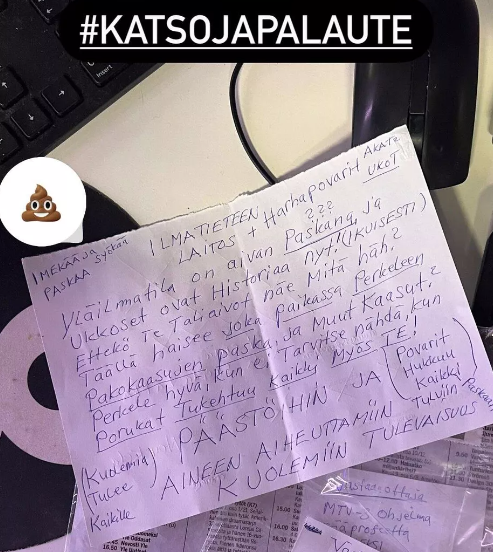 #KATSOJAPALAUTE
Insert
IMEKÄÄ JA
PASKAA SYÖKÄÄ
ILMATIETEEN
LAITOS + Harhapovarit
AKAT &
UKOT
???
Yläilmatila on aivan Paskana, ja
Ukkoset ovat Historiaa nyt! (IKUISESTI)
Ettekö Te Taliaivot näe Mitä häh?
Täällä haisee Joka paikassa Perkeleen
Pakokaasujen paska, ja Muut Kaasut.?
Perkele hyvä, kun ei Tarvitse nähdä, kun
Porukat Tukehtuu Kaikki Myös TE!
PÄÄSTÖIHIN JA
(Povarit
Hukkuu
Kaikki
Tulviin Paskaan)
AINEEN AIHEUTTAMIIN
KUOLEMIIN TULEVAISUUS
(Kuolemia)
Tulee
Kaikille
MTV- ohjelma